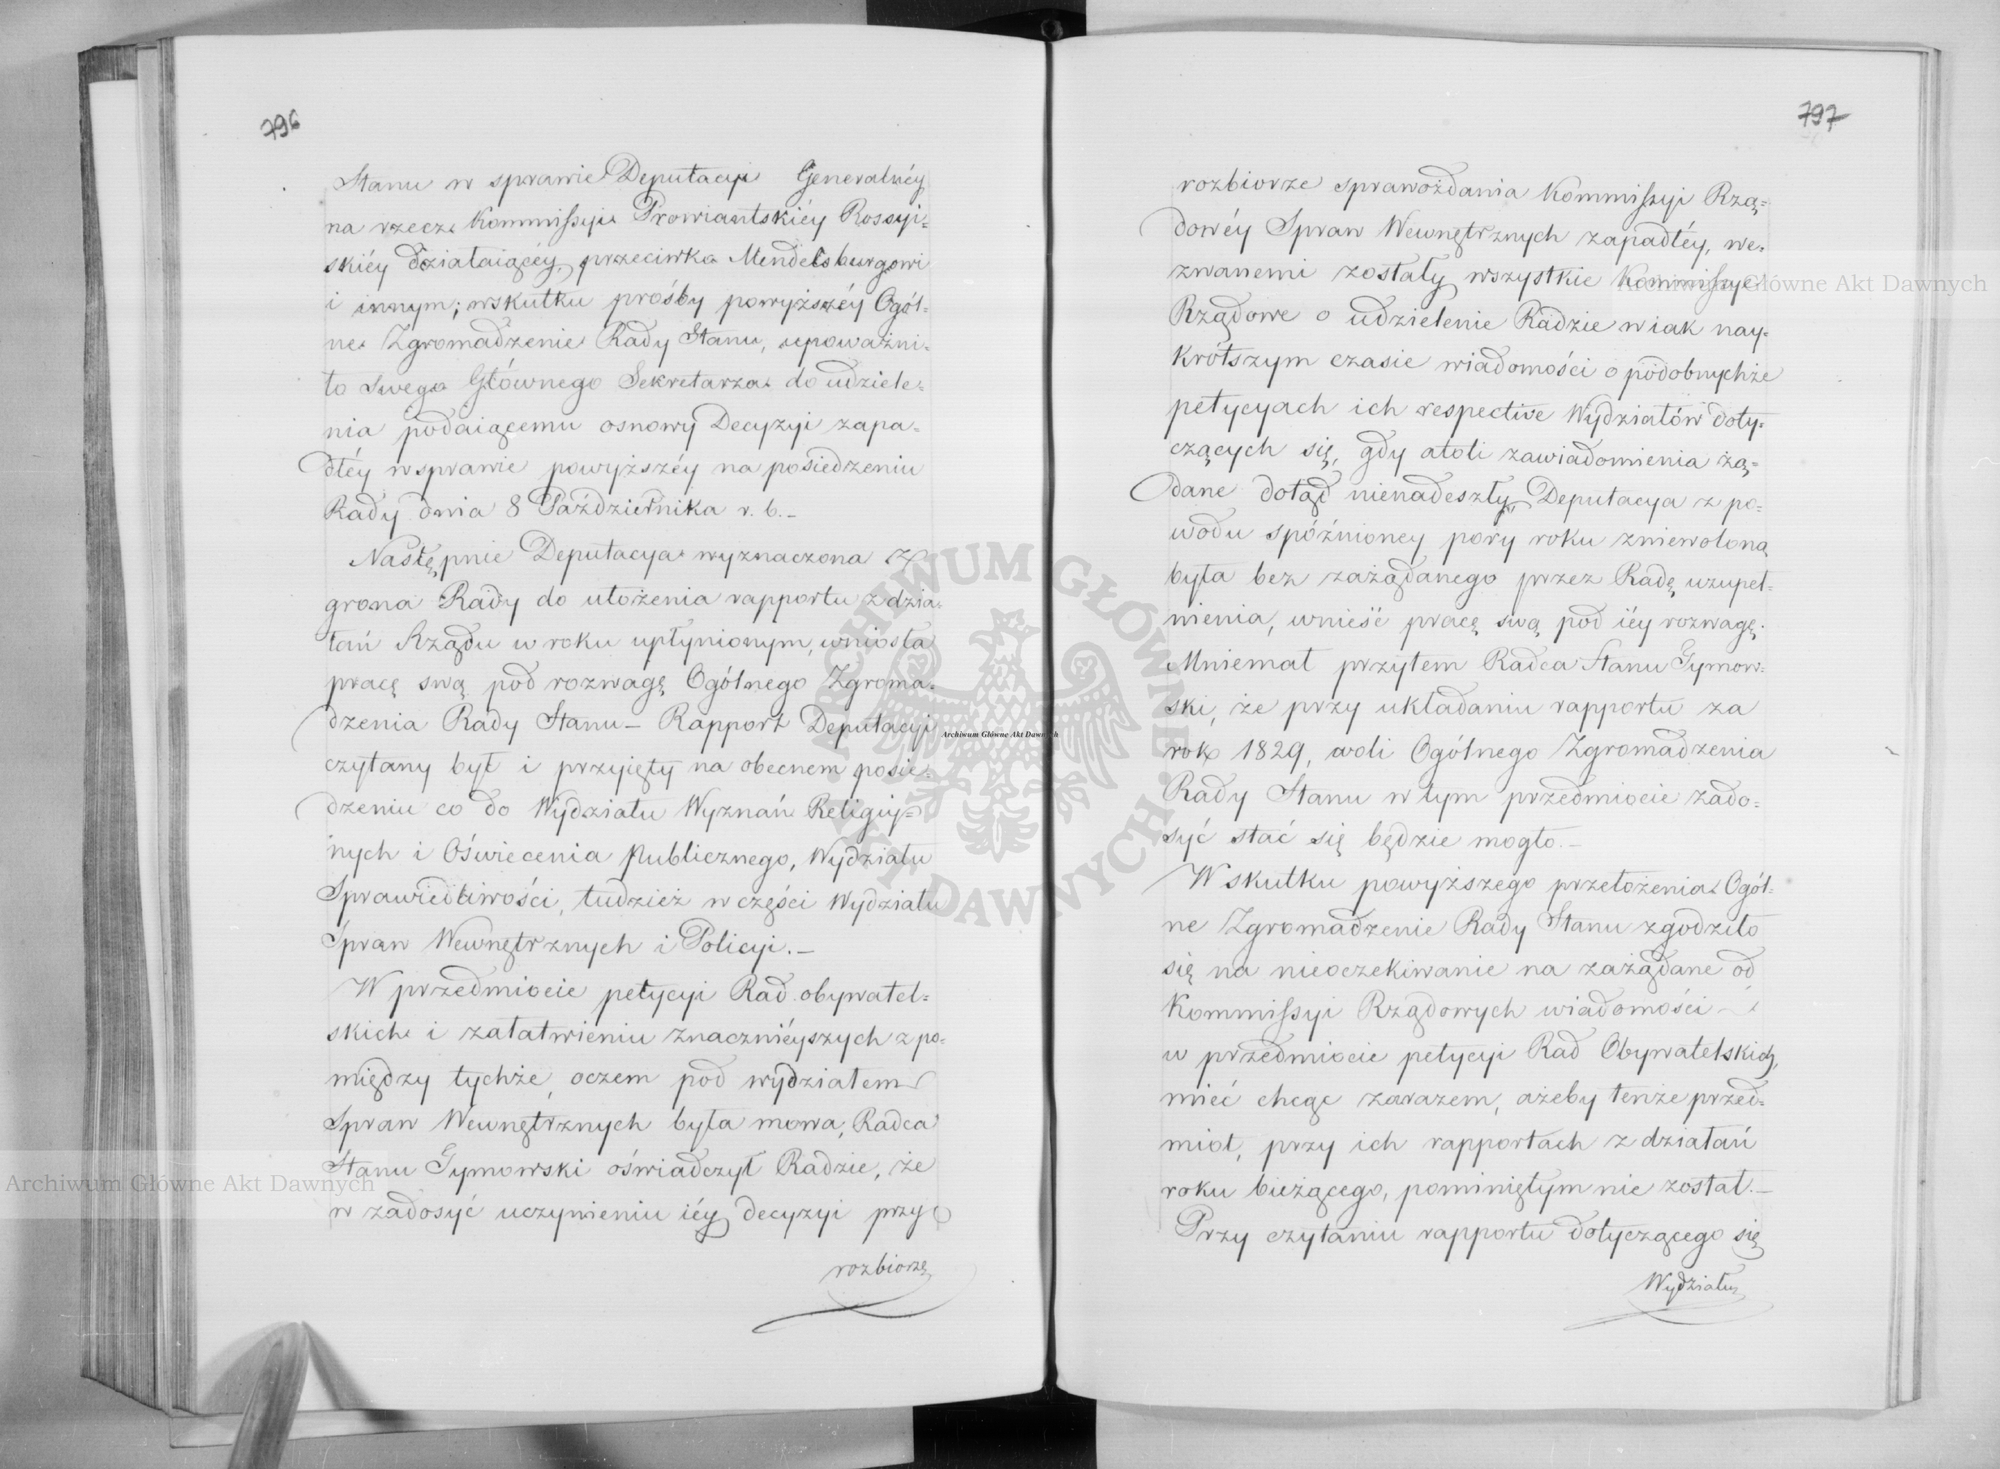 796
Stanu w sprawie Deputacyi Generalnéy
na rzecz Kommissyi Prowiantskiéy Rossyi-
skiéy działaiącéy, przeciwko Mendelsburgowi
i innym; wskutku prośby powyższéy Ogól-
ne Zgromadzenie Rady Stanu, upoważni-
ło Swego Głównego Sekretarza do udziele-
nia podaiącemu osnowy Decyzyi zapa-
dłéy w sprawie powyższéy na posiedzeniu
Rady dnia 8 Października r. b. –
Następnie Deputacya wyznaczona z
grona Rady do ułożenia rapportu z dzia-
łań Rządu w roku upłynionym, wniosła
pracę swą pod rozwagę Ogólnego Zgroma-
dzenia Rady Stanu – Rapport Deputacyi
czytany był i przyięty na obecnem posie-
dzeniu co do Wydziału Wyznań Religiy-
nych i Oświecenia Publicznego, Wydziału
Sprawiedliwości, tudzież w części Wydziału
Spraw Wewnętrznych i Policyi. –
W przedmiocie petycyi Rad obywatel-
skich i załatwieniu znacznieyszych z po-
między tychże, oczem pod wydziałem
Spraw Wewnętrznych była mowa, Radca
Stanu Tymowski oświadczył Radzie, że
w zadosyć uczynieniu iéy decyzyi przy
rozbiorze
797
rozbiorze sprawozdania Kommissyi Rzą-
dowéy Spraw Wewnętrznych zapadłéy, we-
zwanemi zostały wszystkie Kommissye
Rządowe o udzielenie Radzie w iak nay-
krótszym czasie wiadomości o podobnychże
petycyach ich respective Wydziałów doty-
czących się, gdy atoli zawiadomienia żą-
dane dotąd nienadeszły, Deputacya z po-
wodu spóźnioney pory roku zniewoloną
była bez zażądanego przez Radę uzupeł-
nienia, wnieść pracę swą pod iéy rozwagę.
Mniemał przytem Radca Stanu Tymow-
ski, że przy układaniu rapportu za
rok 1829, woli Ogólnego Zgromadzenia
Rady Stanu w tym przedmiocie zado-
syć stać się będzie mogło. –
W skutku powyższego przełożenia Ogól-
ne Zgromadzenie Rady Stanu zgodziło
się na nieoczekiwanie na zażądane od
Kommissyi Rządowych wiadomości –
w przedmiocie petycyi Rad Obywatelskich,
mieć chcąc zarazem, ażeby tenże przed-
miot, przy ich rapportach z działań
roku bieżącego, pominiętym nie został. –
Przy czytaniu rapportu dotyczącego się
Wydziału
Archiwum Główne Akt Dawnych
Archiwum Główne Akt Dawnych
Archiwum Główne Akt Dawnych
ARCHIWUM GŁÓWNE AKT DAWNYCH